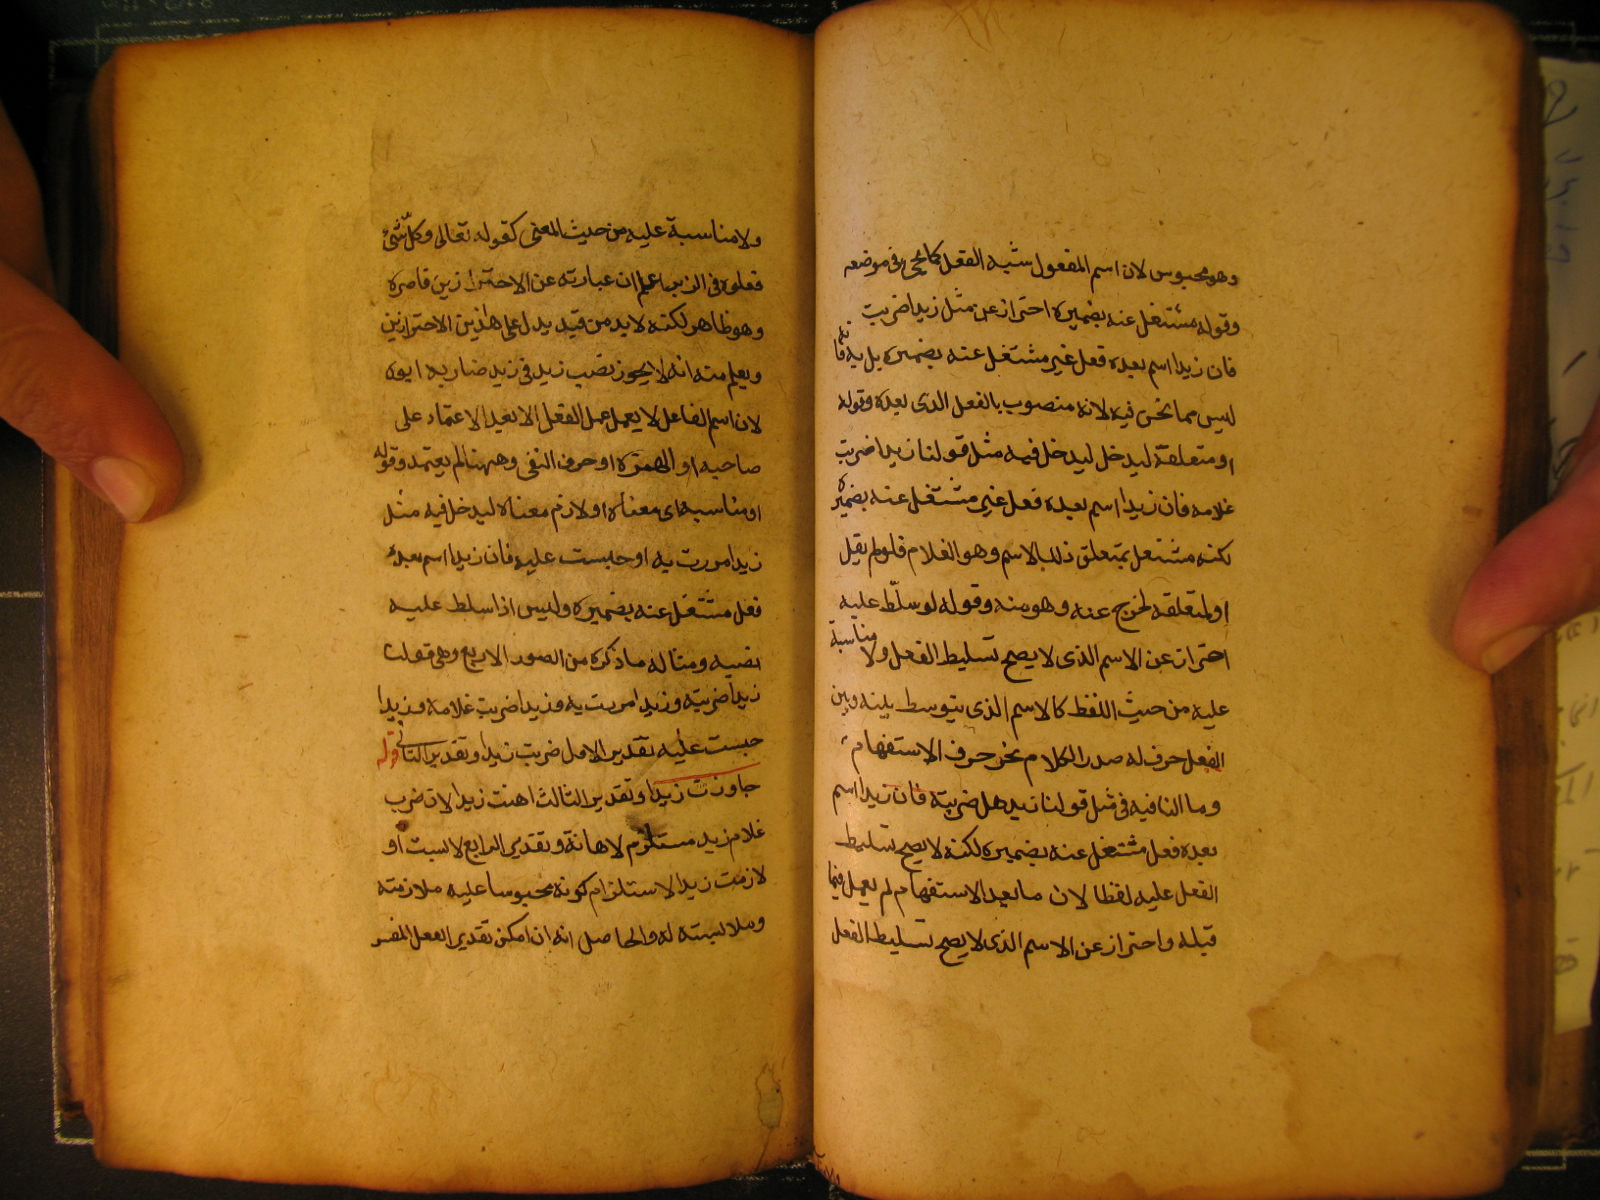 وهو محبوس لان اسم المفعول شبه الفعل كما يجيء في موضعه
وقوله مشتغل عنه بضميره احتراز عن مثل زيدا ضربت
فان زيدا اسم بعده فعل غير مشتغل عنه بضميره بل به
ليس مما نحن فيه لانه منصوب بالفعل الذى بعده وقوله
او متعلقه ليدخل ليدخل فيه مثل قولنا زيدا ضربت
غلامه فان زيدا اسم بعده فعل غير مشتغل عنه بضميره
لكنه مشتغل بمتعلق ذلك الاسم وهو الغلام فلو لم يقل
او لمتعلقه لخرج عنه وهو منه وقوله لو سلّط عليه
احتراز عن الاسم الذى لا يصح تسليط الفعل ولا مناسبة
عليه من حيث اللفظ كالاسم الذى يتوسط بينه وبين
الفعل حرف له صدر الكلام نحو حرف الاستفهام
وما النافيه فى مثل قولنا زيد هل ضربته فان زيدا اسم
بعده فعل مشتغل عنه بضميره لكنه لا يصح تسليط
الفعل عليه لفظا لان ما بعد الاستفهام لم يعمل فيما
قبله واحتراز عن الاسم الذى لا يصح تسليط الفعل
ولا مناسبة عليه من حيث المعنى كقوله تعالى وكلّ شئ
فعلوه فى الزبر اعلم ان عبارته عن الاحترازين قاصرة
وهو ظاهر لكنه لا بد من قيد يدل على هاذين الاحترازين
ويعلم منه انه لا يجوز نصب زيد فى زيد ضاربه ابوه
لان اسم الفاعل لا يعمل عمل الفعل الا بعد الاعتماد على
صاحبه او الهمزة او حرف النفى وههنا لم يعتمد وقوله
او مناسبه اى معناه او لازم معناه ليدخل فيه مثل
زيدا مررت به او حبست عليه فان زيدا اسم بعده
فعل مشتغل عنه بضميره وليس اذا سلط عليه
نصبه ومثاله ما ذكره من الصور الاربع وهى قولك
زيدا ضربته وزيدا مررت به وزيدا ضربت غلامه وزيدا
حبست عليه تقدير الاول ضربت زيدا وتقدير الثانى قوله
جاوزت زيدا وتقدير الثالث اهنت زيدا لان ضرب
غلام زيد مستلزم لاهانة وتقدير الرابع لابست او
لازمت زيدا لاستلزام كونه محبوسا عليه ملازمته
وملابسته له والحاصل انه ان امكن تقدير الفعل المفسر